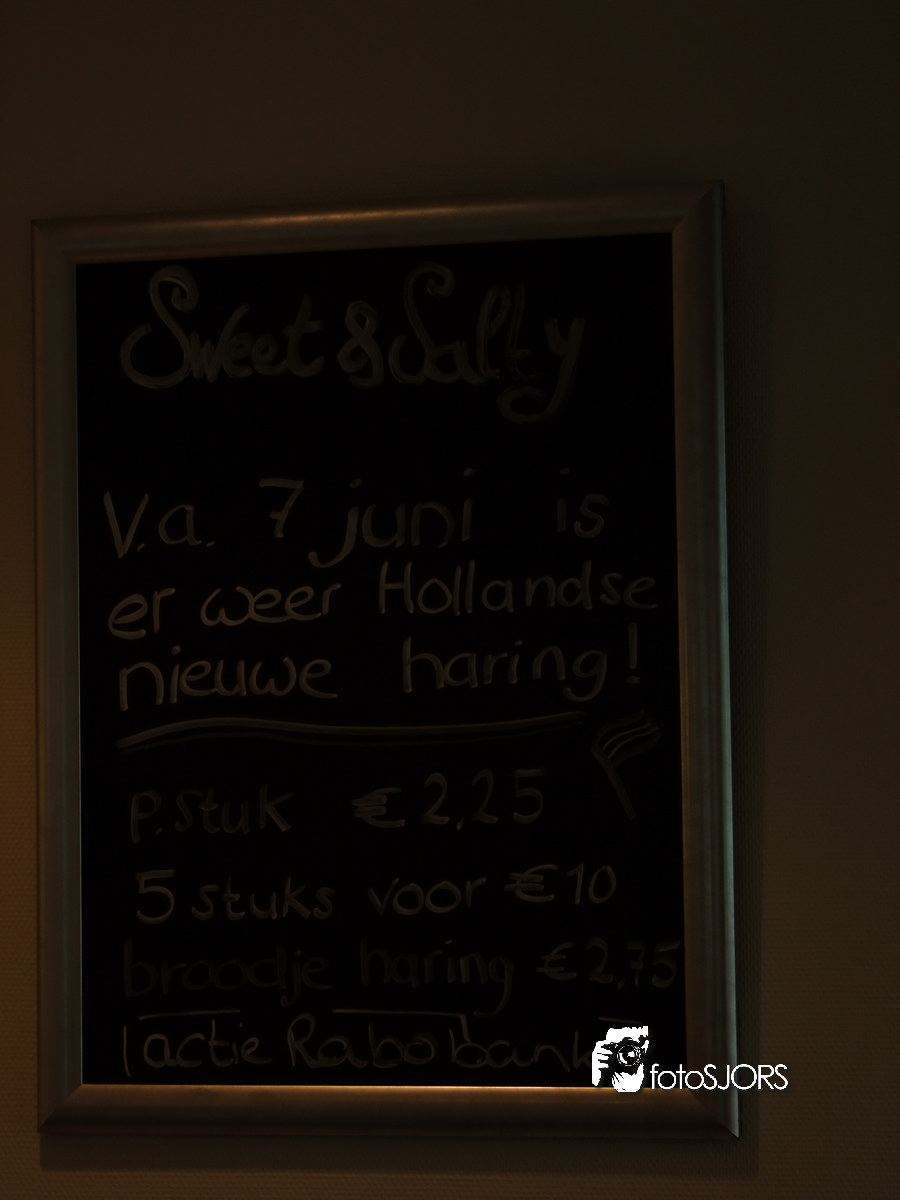 Sweet & Salty
V.a. 7 juni is
er weer Hollandse
nieuwe haring!
p.stuk € 2,25
5 stuks voor € 10
broodje haring € 2,75
actie Rabobank
fotoSJORS